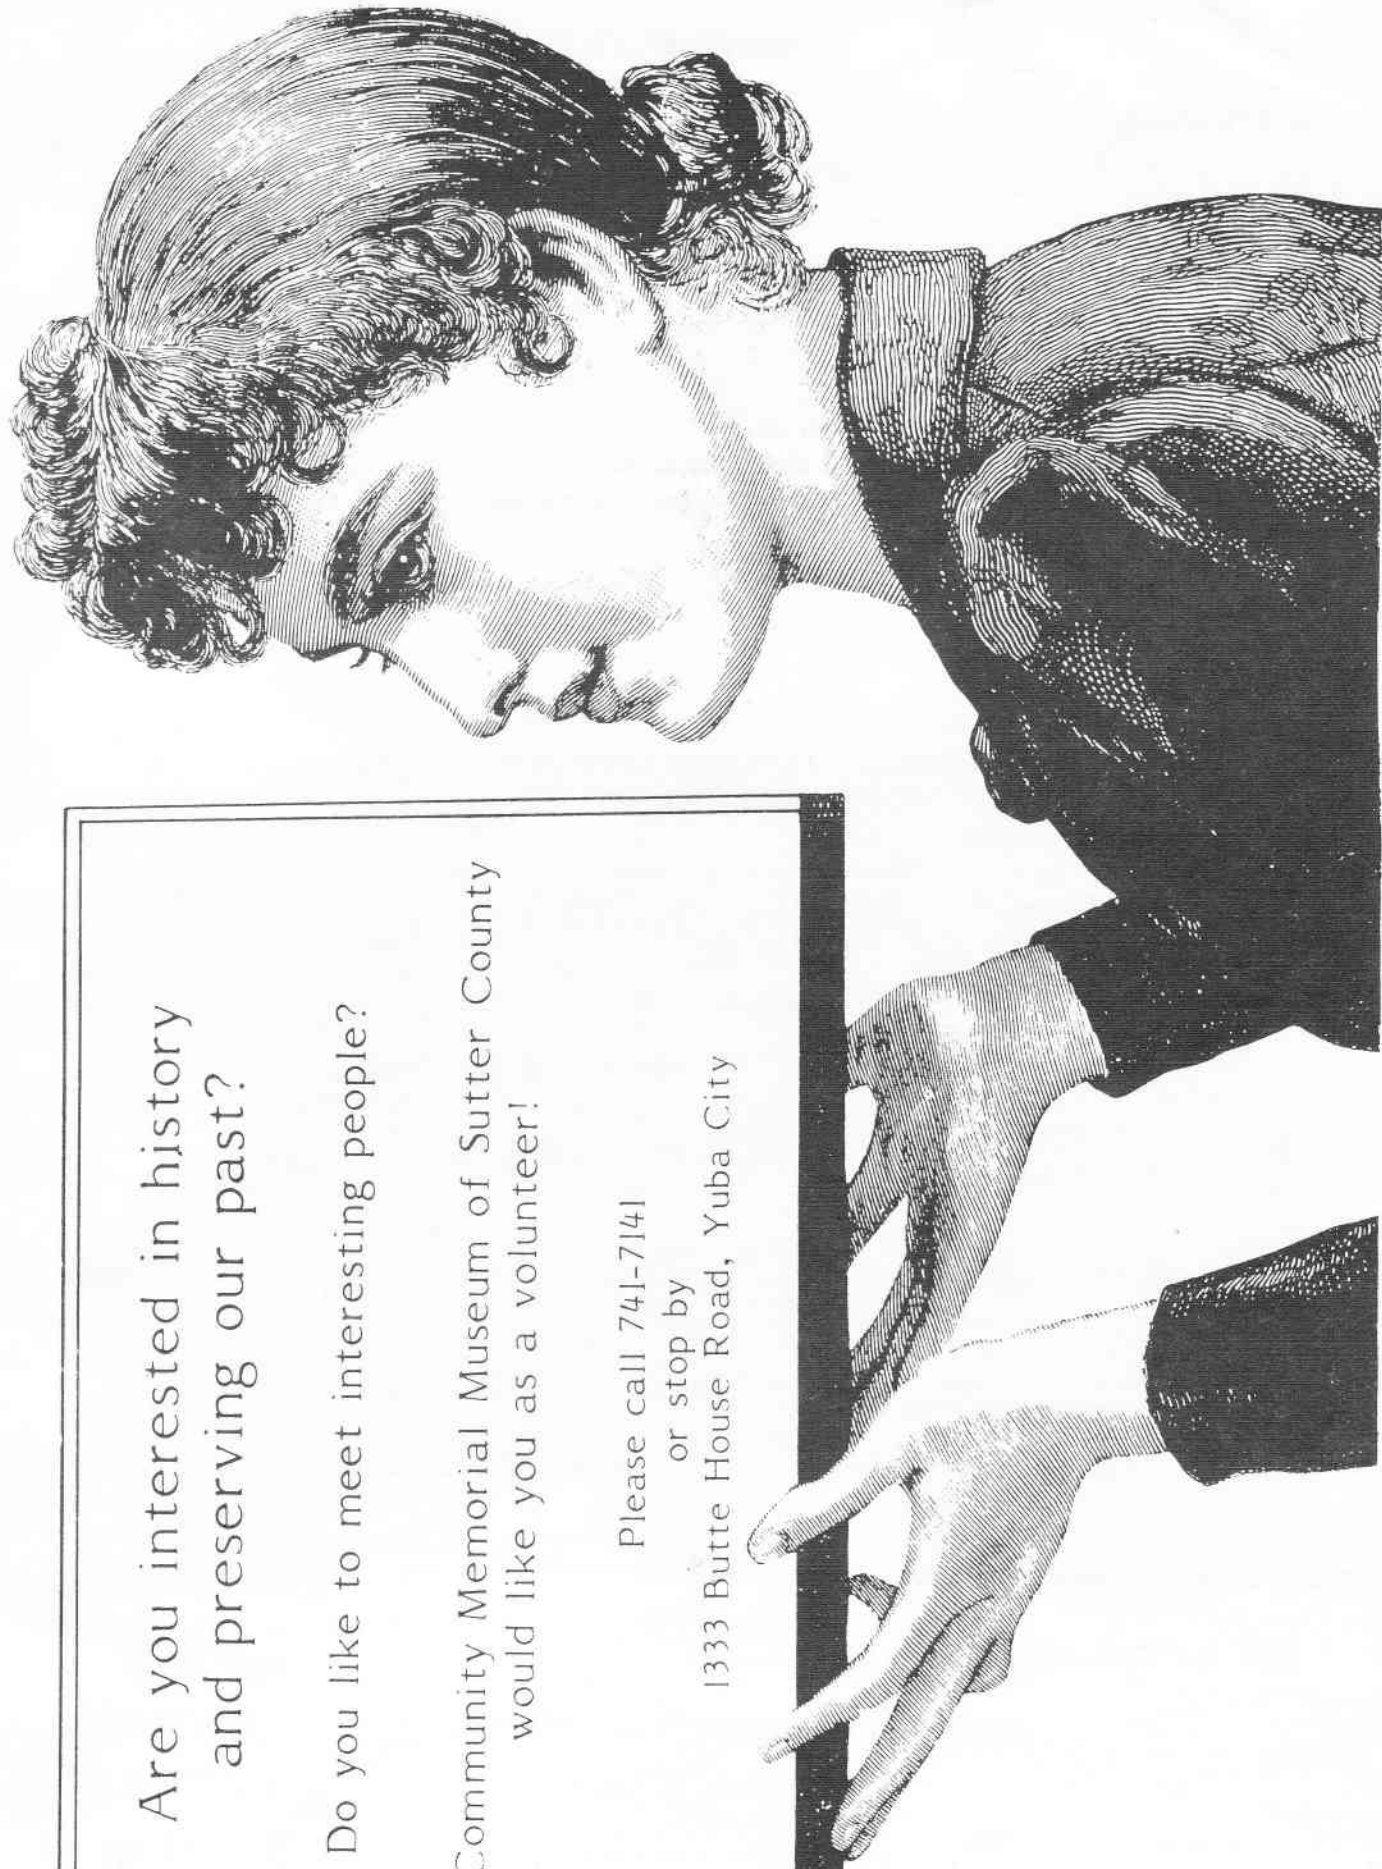 Are you interested in history
and preserving our past?
Do you like to meet interesting people?
Community Memorial Museum of Sutter County
would like you as a volunteer!
Please call 741-7141
or stop by
1333 Butte House Road, Yuba City